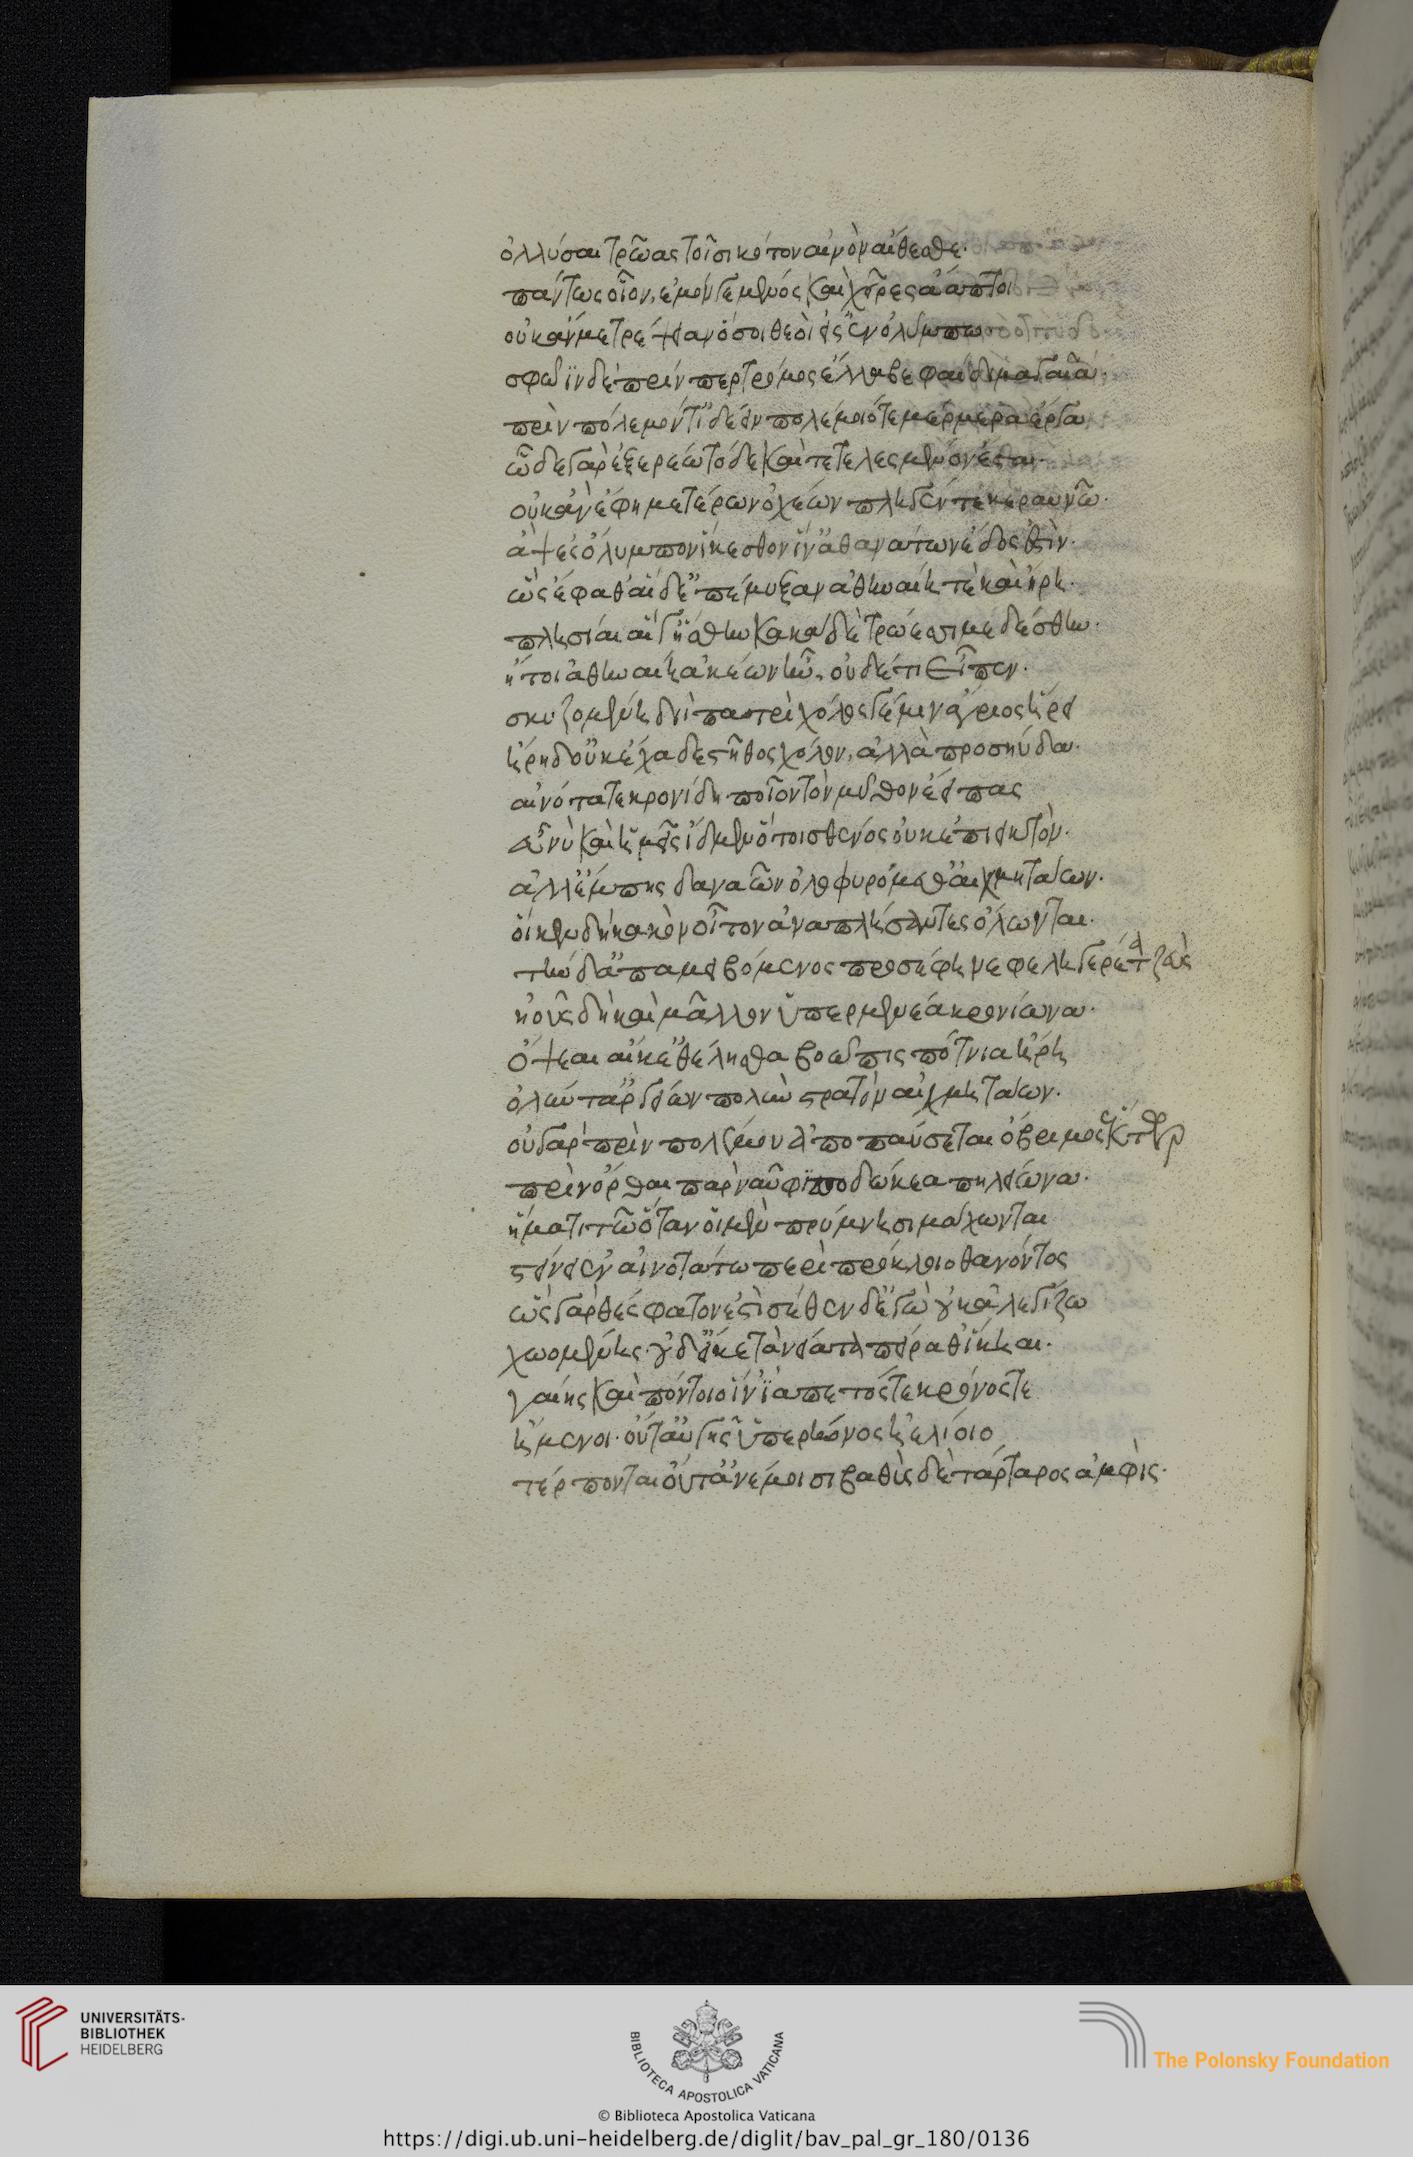 ὀλλῦσαι Τρῶας τοῖσι κότον αἰνὸν ἔθεσθε·
πάντως οἷον ἐμόν γε μένος καὶ χεῖρες ἄαπτοι
οὐκ ἄν με τρέψειαν ὅσοι θεοί εἰσ' ἐν ὀλύμπω
σφῶϊν δὲ πρίν περ τρόμος ἔλλαβε φαίδιμα γυῖα·
πρὶν πόλεμόν τ' ἰδέειν πολέμοιό τε μέρμερα ἔργα
ὧδε γὰρ ἐξερέω τό δε καὶ τετελεσμένον ἔσται·
οὐκ ἂν ἐφ' ἡμετέρων ὀχέων πληγέντε κεραυνῶ·
ἂψ ἐς ὄλυμπον ἵκεσθον ἵν' ἀθανάτων ἕδος ἐστίν·
ὣς ἔφαθ' αἱ δ' ἐπέμυξαν ἀθηναίη τε καὶ ἥρη·
πλησίαι αἵ γ' ἥσθην κακὰ δὲ τρώεσσι μεδέσθην·
ἤτοι ἀθηναίη ἀκέων ἦν, οὐδέ τι εἶπεν·
σκυζομένη διὶ πατρὶ χόλος δέ μιν ἄγριος ἥρει
ἥρη δ' οὐκ ἔχαδε στῆθος χόλον, ἀλλὰ προσηύδα·
αἰνότατε κρονίδη ποῖον τὸν μῦθον ἔειπας
εὖ νυ καὶ ἡμεῖς ἴδμεν ὅ τοι σθένος οὐκ ἐπιεικτόν·
ἀλλ' ἔμπης δαναῶν ὀλοφυρόμεθ' αἰχμητάων·
οἵ κεν δὴ κακὸν οἶτον ἀναπλήσαντες ὄλωνται·
τὴν δ' ἀπαμειβόμενος προσέφη νεφεληγερέτα ζεὺς
ἠοῦς δὴ καὶ μᾶλλον ὑπερμενέα κρονίωνα·
ὄψεαι αἴ κ' ἐθέλησθα βοῶπις πότνια ἥρη
ὀλλύντ' ἀργείων πολὺν στρατὸν αἰχμητάων·
οὐ γὰρ πρὶν πολέμου ἀποπαύσεται ὄβριμος ἕκτωρ
πρὶν ὄρθαι παρὰ ναῦφι ποδώκεα πηλείωνα·
ἤματι τῶ ὅταν οἱ μὲν πρύμνησι μάχωνται
στείνει ἐν αἰνοτάτω περὶ πατρόκλοιο θανόντος
ὣς γὰρ θέσφατον ἐστὶ σέθεν δ' ἐγὼ οὐκ ἀλεγίζω
χωομένης· οὐδ' εἴ κε τὰ νείατα πείραθ' ἵκηαι·
γαίης καὶ πόντοιο ἵν' ἰαπετός τε κρόνος τε
ἥμενοι· οὔτ' αὐγῆς ὑπερίονος ἠελίοιο
τέρποντ' οὔτ' ἀνέμοισι βαθὺς δὲ τάρταρος ἀμφὶς·
UNIVERSITÄTS-
BIBLIOTHEK
HEIDELBERG
BIBLIOTECA APOSTOLICA VATICANA
The Polonsky Foundation
© Biblioteca Apostolica Vaticana
https://digi.ub.uni-heidelberg.de/diglit/bav_pal_gr_180/0136